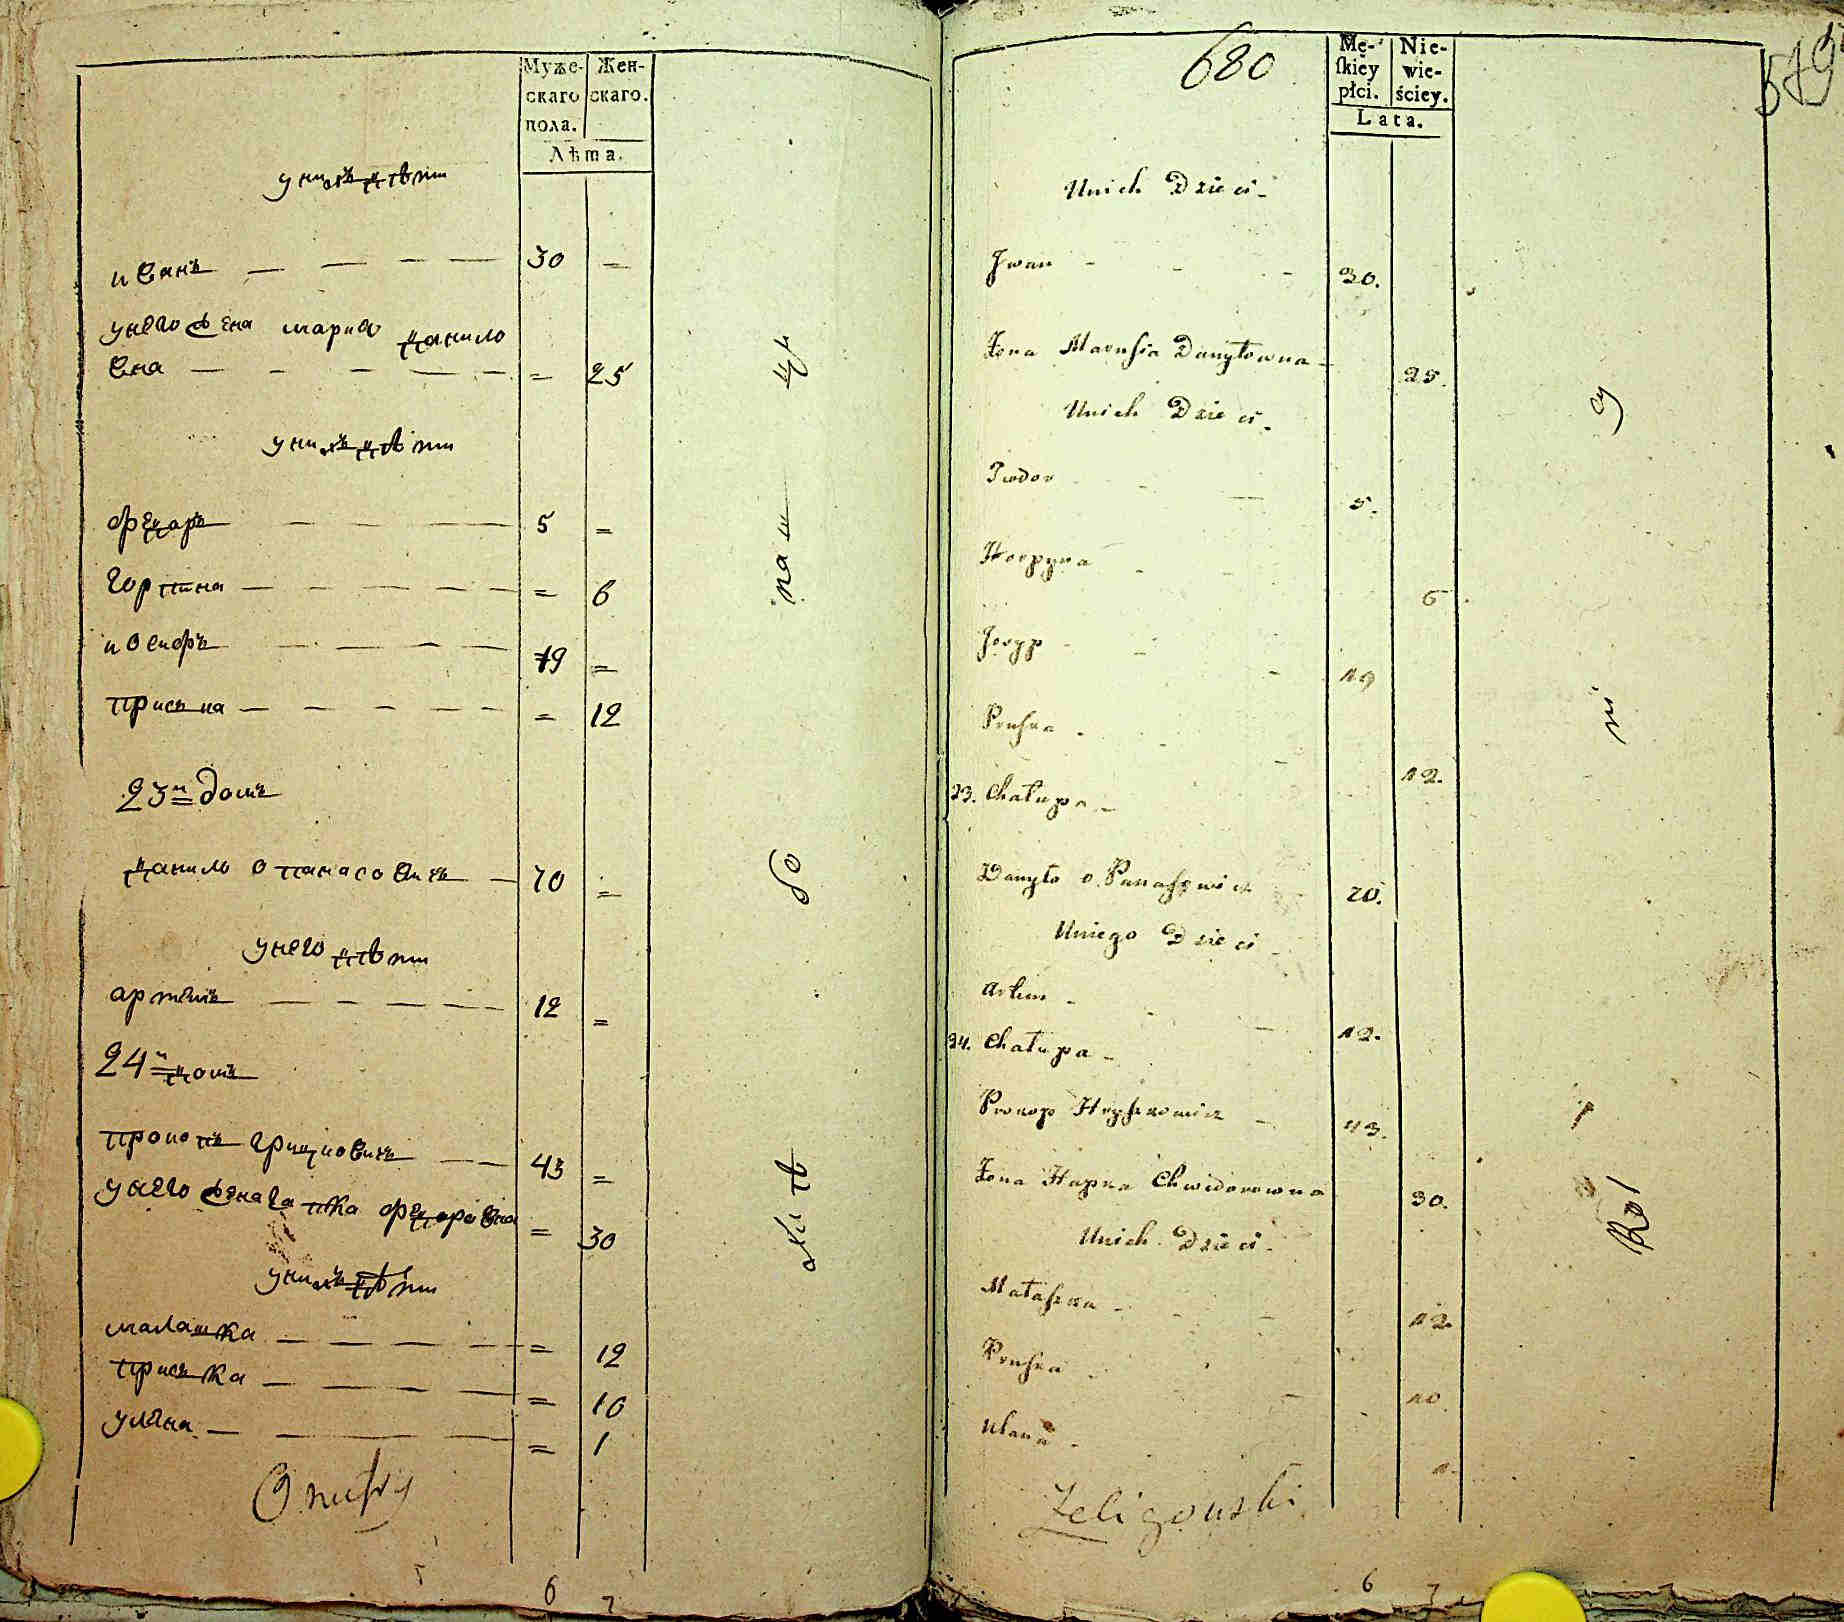 Муже- Жен-
скаго скаго.
пола.
Лѣта.
у нихъ дѣти
иванъ — — — — 30 =
у него жена мария данило
вна — — — — — = 25
у нихъ дѣти
федаръ — — — — 5 =
горпина — — — — — = 6
иосифъ — — — — 19 =
приська — — — — — = 12
23й домъ
данило опанасовичъ — 70 =
у него дѣти
артемъ — — — — — 12 =
24й домъ
прокопъ грицковичъ — — 43 =
у него жена гапка федоровна = 30
у нихъ дѣти
малашка — — — — — = 12
приська — — — — = 10
улена — — — = 1
Onufry
6 7
680
Mę- Nie-
skiey wie-
płci. ściey.
Lata.
579
Unich Dzieci -
Jwan - - - 30.
Żona Marusia Danyłowna - 25.
Unich Dzieci.
Fiodor - - — 5.
Horpyna - - 6.
Josyp - - - 19
Pruska - - - 12.
23. Chałupa -
Danyło o Panasowicz - 70.
Uniego Dzieci -
Artem - - - 12.
24. Chałupa -
Prokop Hryszkowicz - 43.
Żona Hapka Chwidorowna 30.
Unich Dzieci.
Małaszka - - - 12.
Pruska - - 10.
Ulana - 1.
Żeligowski
6 7